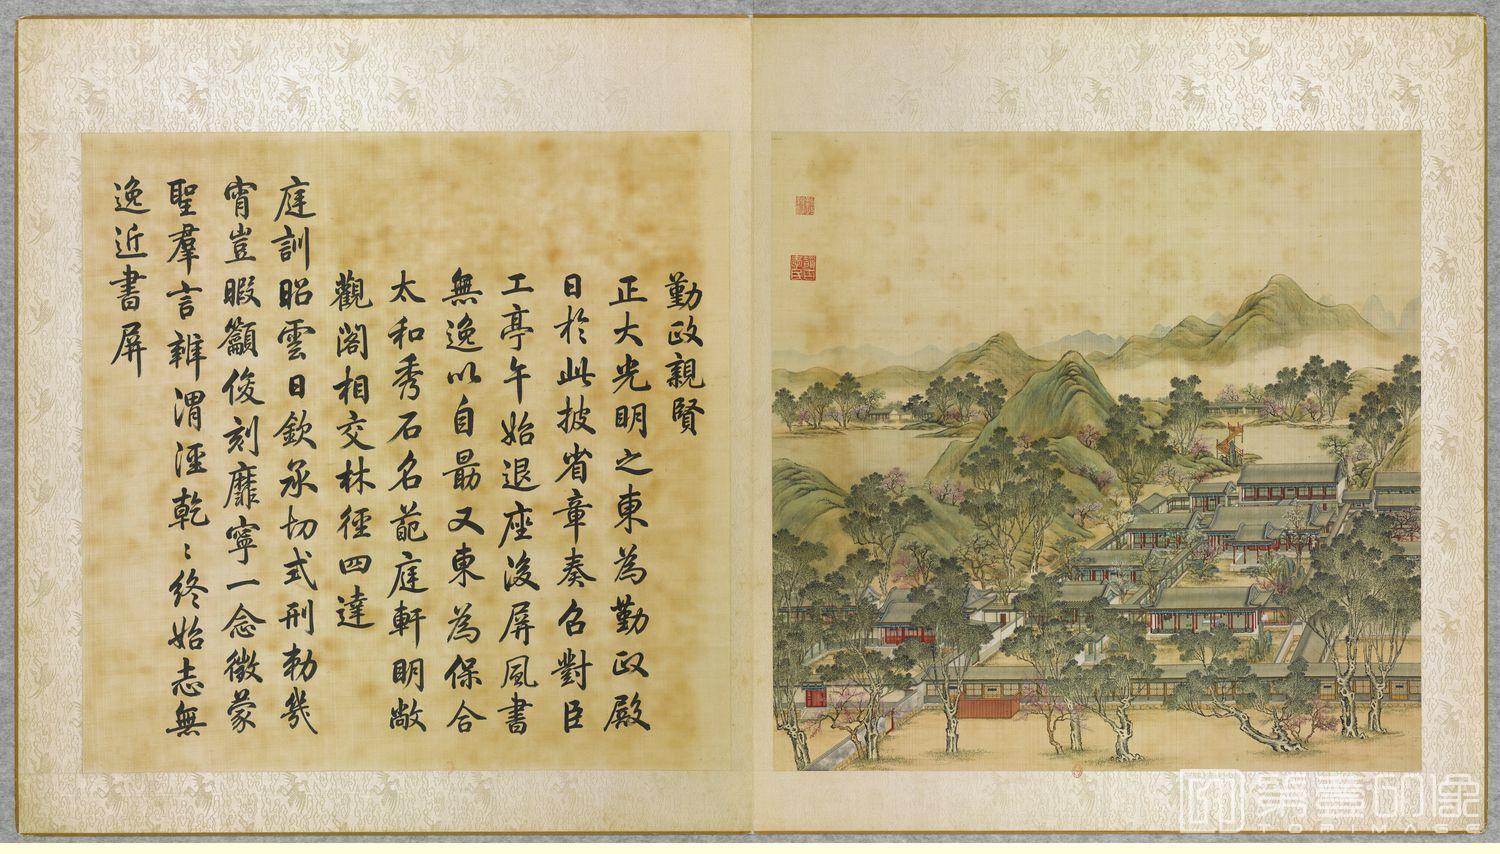 勤政親賢
正大光明之東為勤政殿
日於此披省章奏召對臣
工亭午始退座後屏風書
無逸以自勗又東為保合
太和秀石名葩庭軒明敞
觀閣相交林徑四達
庭訓昭雲日欽承切式刑勅幾
宵豈暇籲俊刻靡寧一念徵蒙
聖羣言辨渭涇乾〻終始志無
逸近書屏
第壹图象
TOPIMAGE